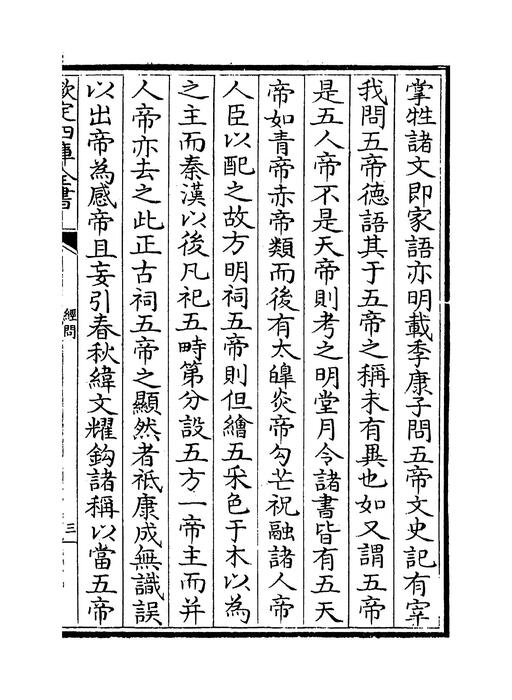 掌牲諸文即家語亦明載季康子問五帝文史記有宰
我問五帝德語其于五帝之稱未有異也如又謂五帝
是五人帝不是天帝則考之明堂月令諸書皆有五天
帝如青帝赤帝類而後有太皥炎帝勾芒祝融諸人帝
人臣以配之故方明祠五帝則但繪五采色于木以為
之主而秦漢以後凡祀五畤第分設五方一帝主而并
人帝亦去之此正古祠五帝之顯然者祗康成無識誤
以出帝為感帝且妄引春秋緯文耀鈎諸稱以當五帝
欽定四庫全書
經問
三